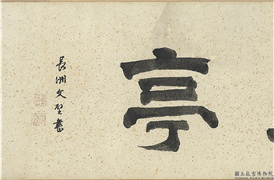 亭
長洲文壁書
國立故宮博物院